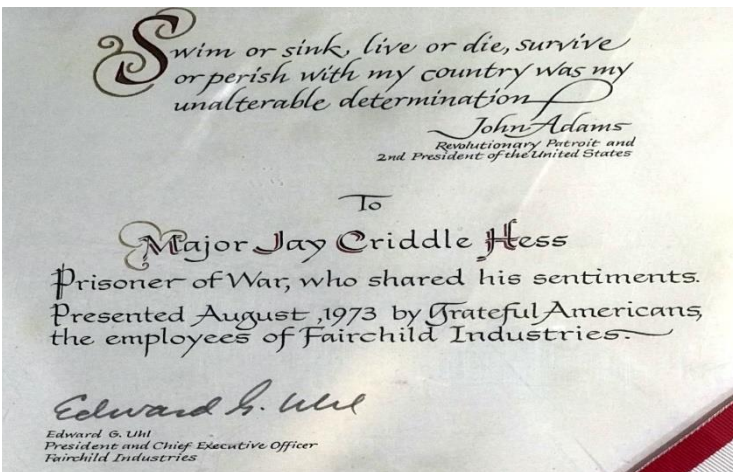 Swim or sink, live or die, survive
or perish with my country was my
unalterable determination
John Adams
Revolutionary Patroit and
2nd President of the United States
To
Major Jay Criddle Hess
Prisoner of War, who shared his sentiments.
Presented August ,1973 by Grateful Americans,
the employees of Fairchild Industries.
Edward G. Uhl
Edward G. Uhl
President and Chief Executive Officer
Fairchild Industries